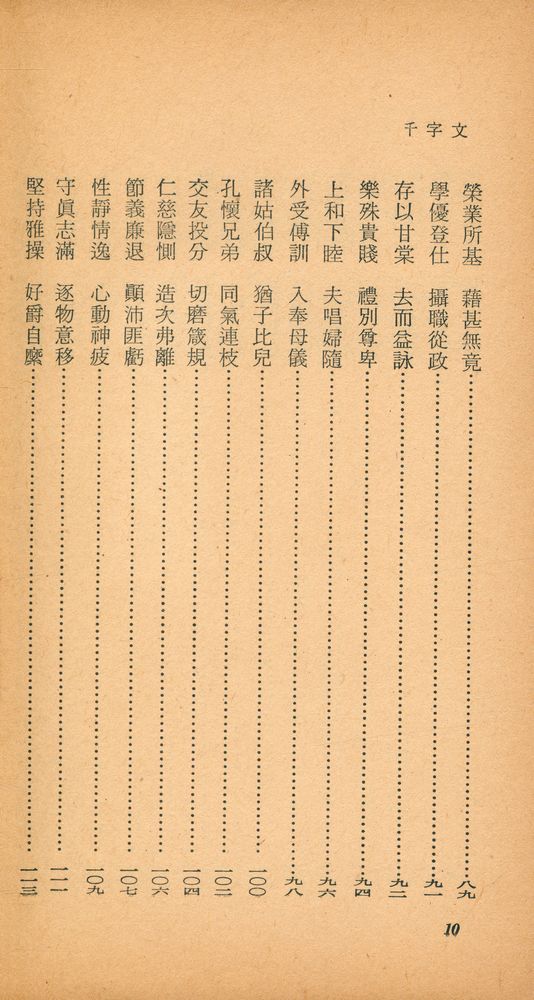 千字文
榮業所基 藉甚無竟……八九
學優登仕 攝職從政……九一
存以甘棠 去而益詠……九二
樂殊貴賤 禮別尊卑……九四
上和下睦 夫唱婦隨……九六
外受傅訓 入奉母儀……九八
諸姑伯叔 猶子比兒……一〇〇
孔懷兄弟 同氣連枝……一〇二
交友投分 切磨箴規……一〇四
仁慈隱惻 造次弗離……一〇六
節義廉退 顚沛匪虧……一〇七
性靜情逸 心動神疲……一〇九
守眞志滿 逐物意移……一一一
堅持雅操 好爵自縻……一一三
10